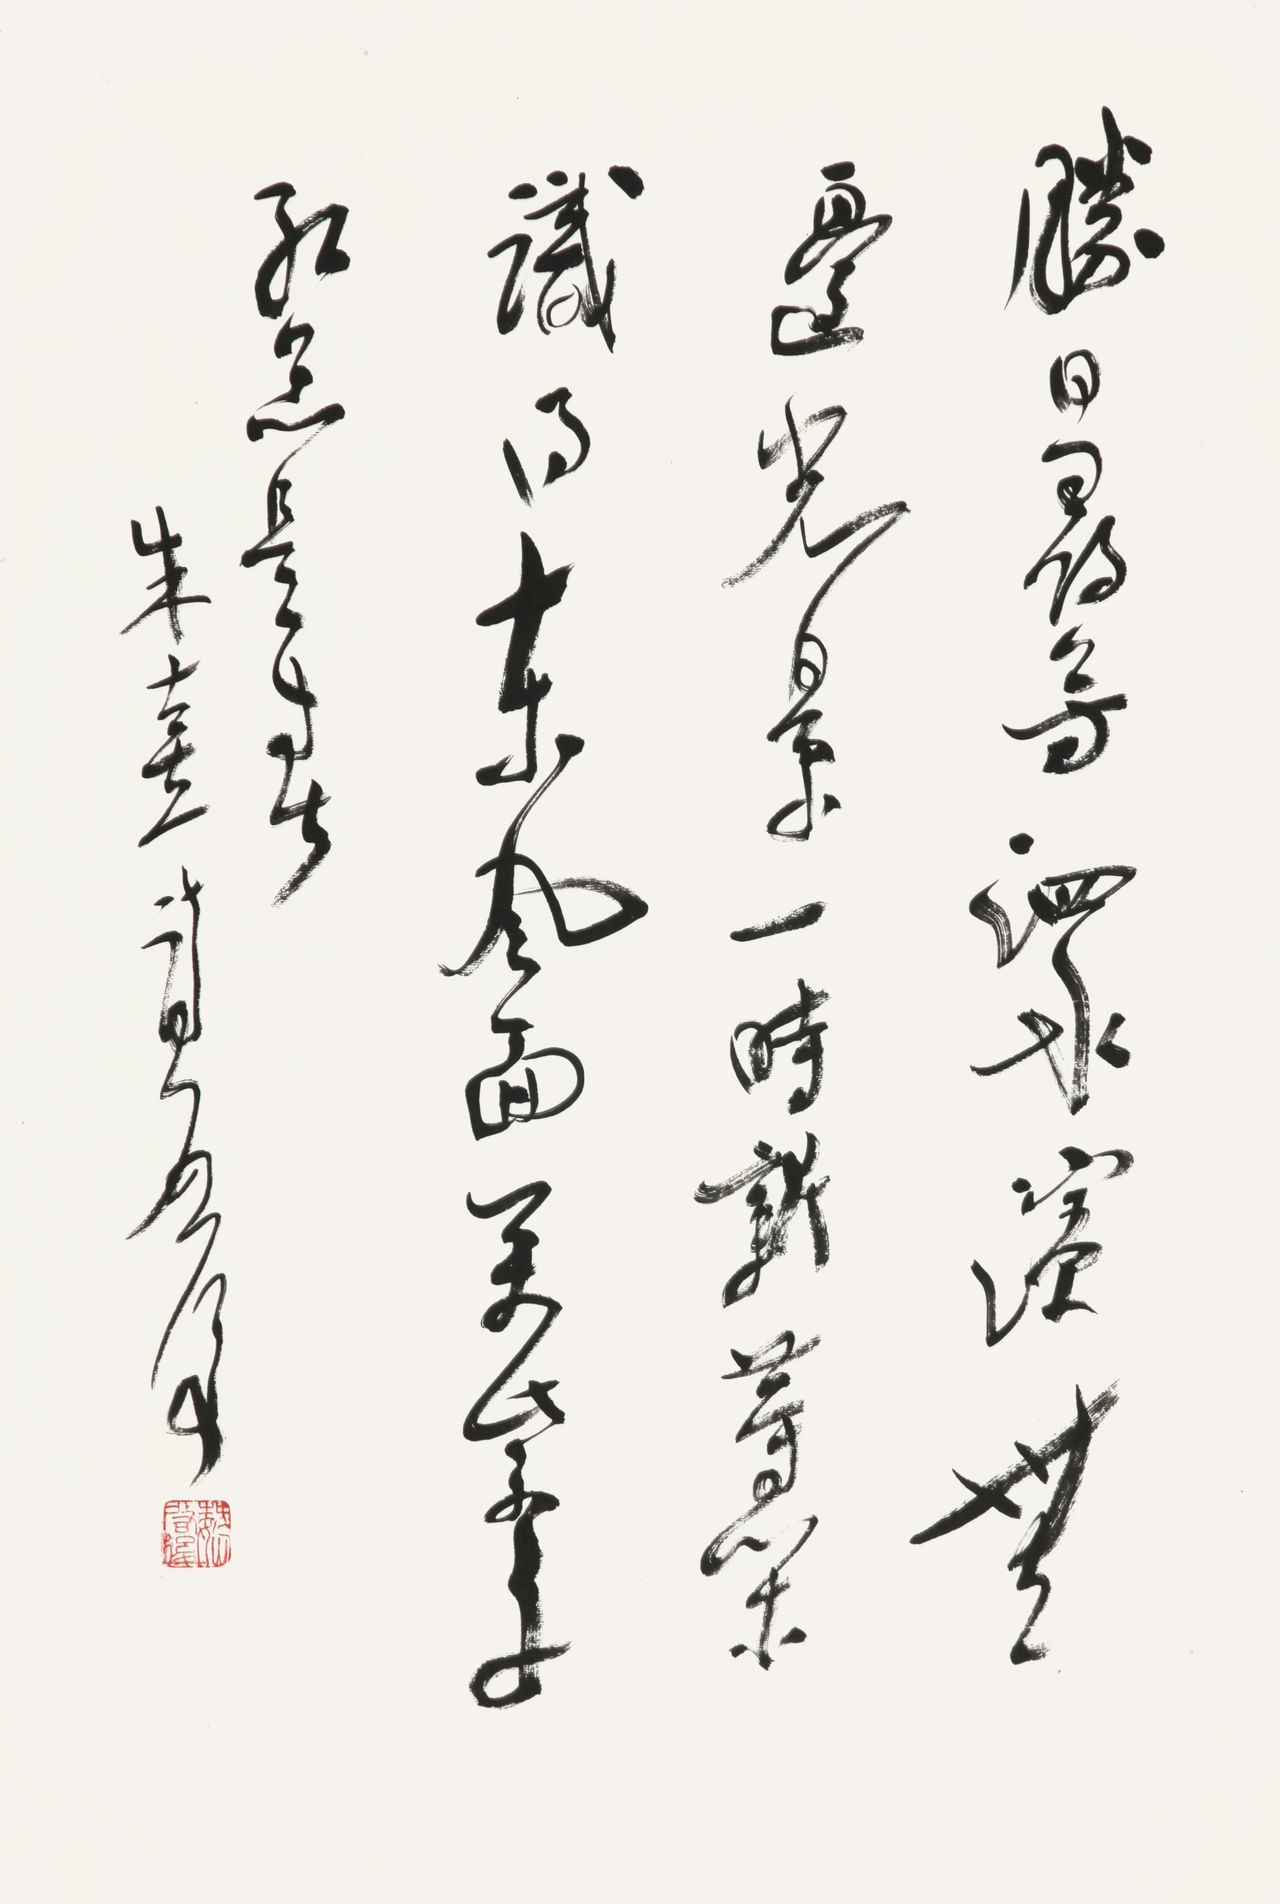 勝日尋芳泗水濱無
邊光景一時新等閑
識得東風面萬紫千
紅總是春
朱熹詩啟後
魏啟後